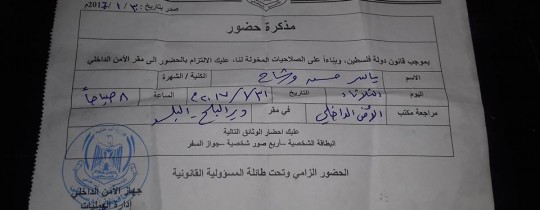 صدر بتاريخ: ٣٠/١/٢٠١٧
مذكرة حضور
بموجب قانون دولة فلسطين، وبناءاً على الصلاحيات المخولة لنا، عليك الالتزام بالحضور الى مقر الأمن الداخلي
الاسم ياسر حسن الكنية / الشهرة
اليوم الثلاثاء التاريخ ٣١/١/٢٠١٧م الساعة ٨ صباحاً
مراجعة مكتب الأمن الداخلي في مقر دير البلح - البلد
عليك احضار الوثائق التالية
البطاقة الشخصية – أربع صور شخصية – جواز السفر
الحضور الزامي وتحت طائلة المسؤولية القانونية
جهاز الأمن الداخلي
إدارة العمليات